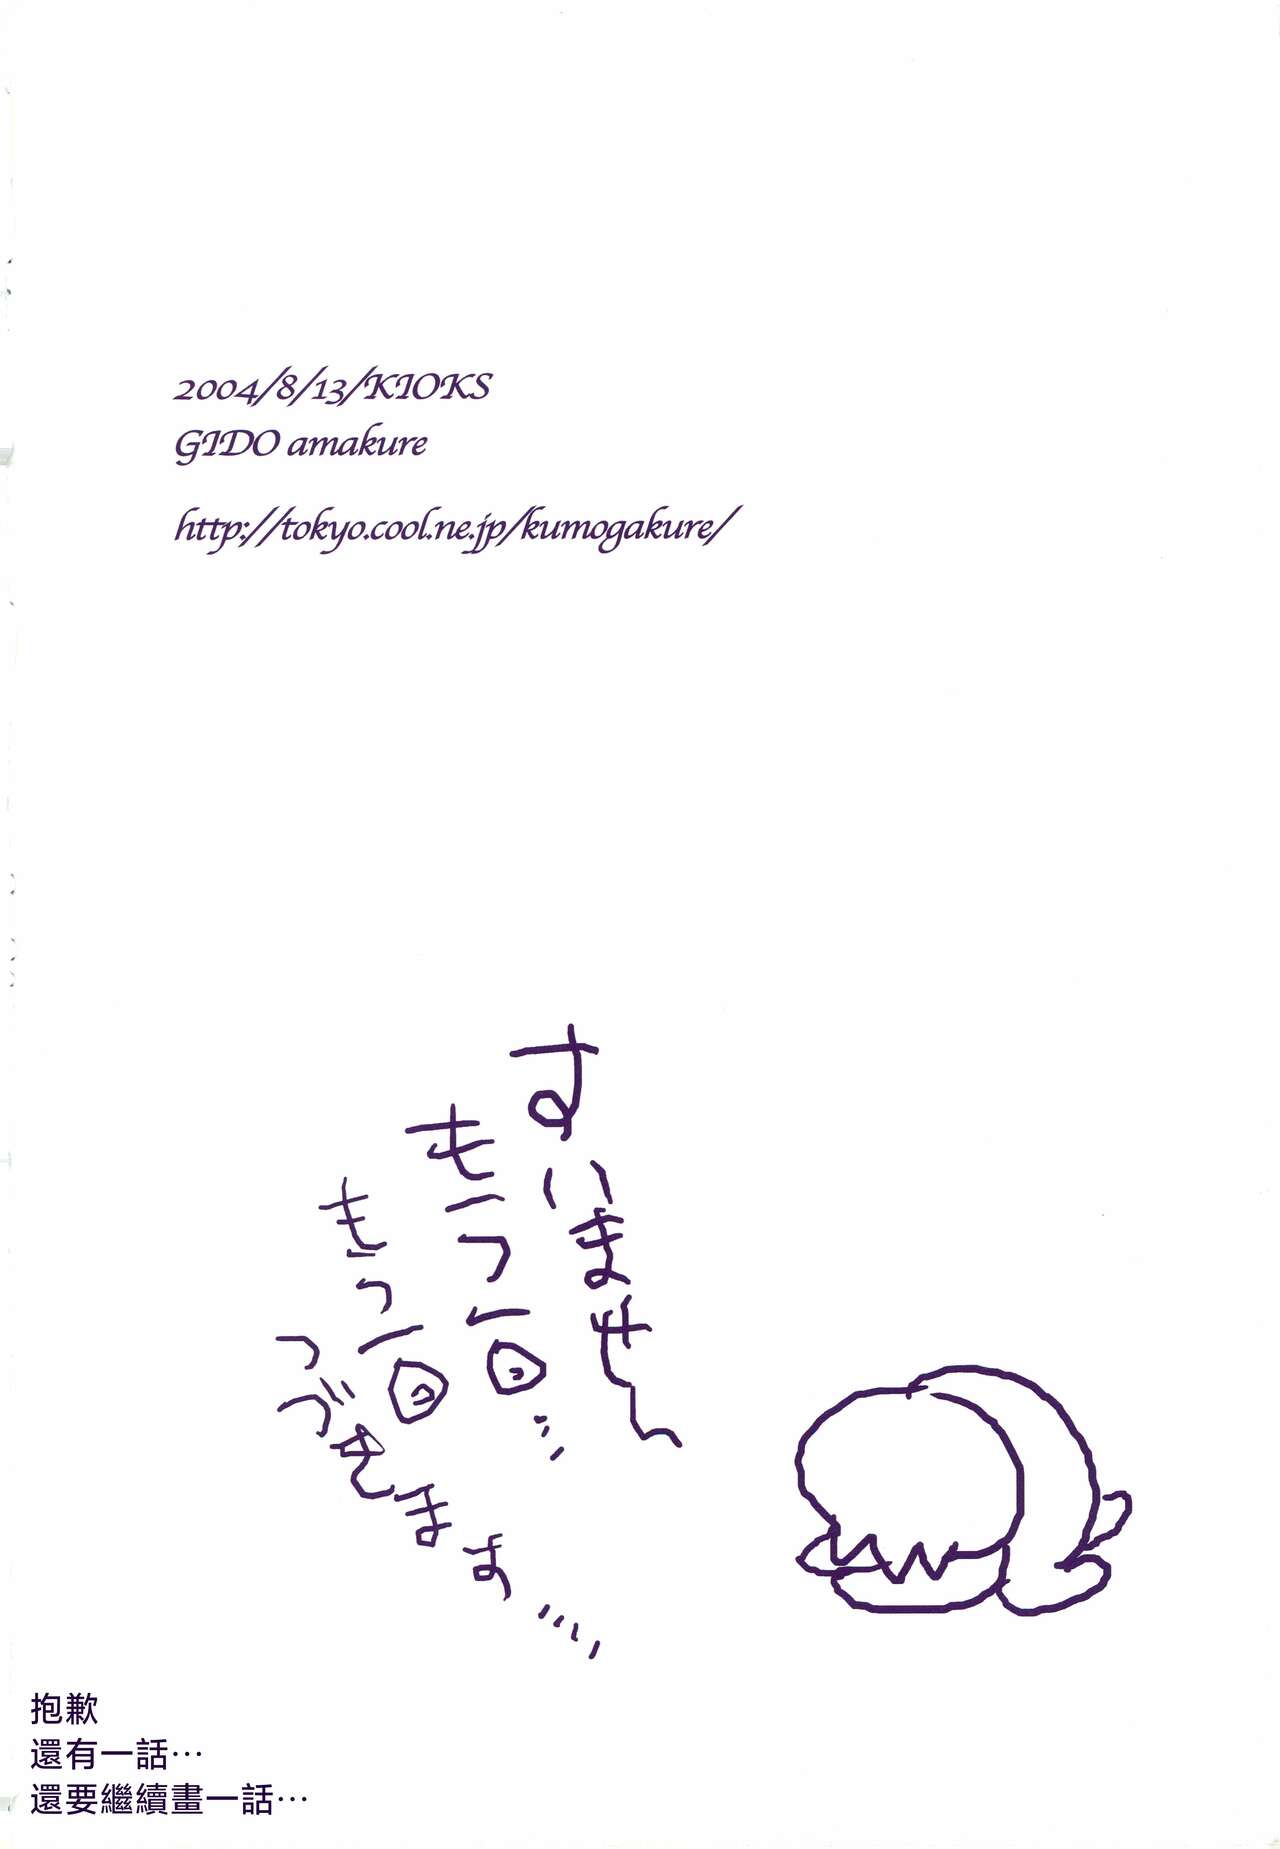 2004/8/13/KIOKS
GIDO amakure
http://tokyo.cool.ne.jp/kumogakure/
すいません
もう一回…
もう一回
つづきます‥‥
抱歉
還有一話…
還要繼續畫一話…